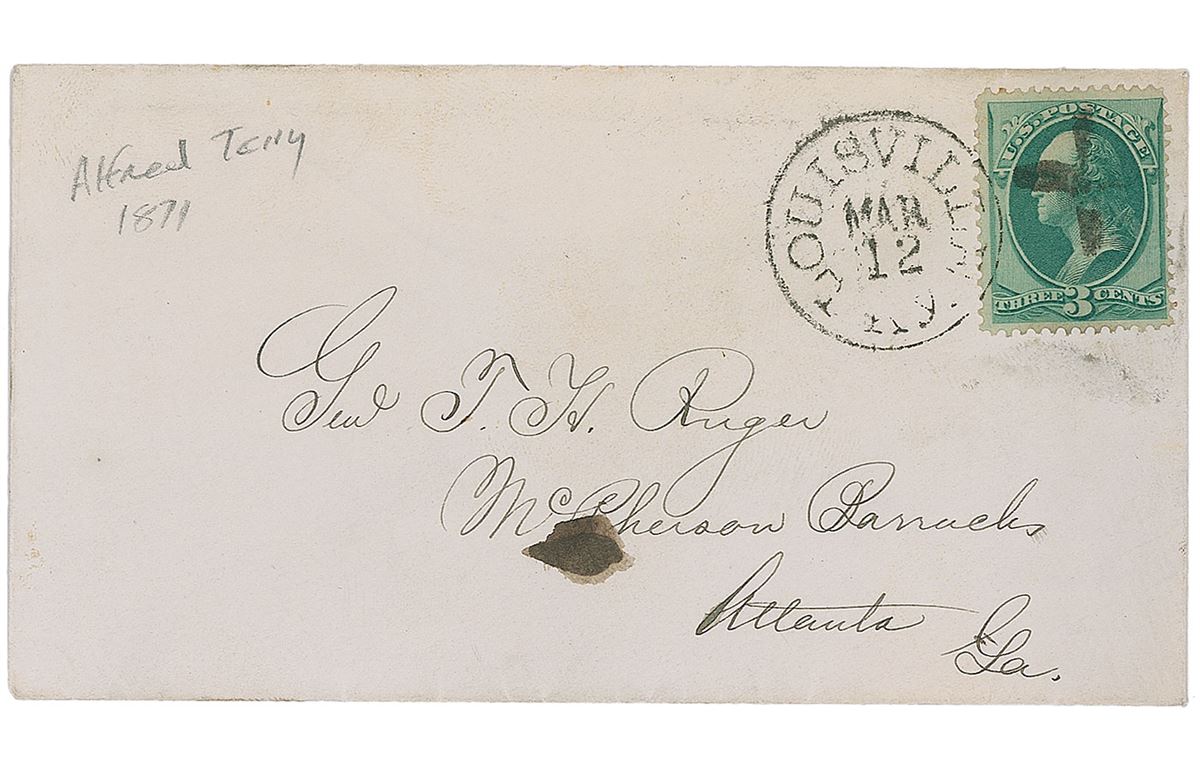 Alfred Terry
1871
LOUISVILLE
MAR
12
KY.
U.S. POSTAGE
THREE 3 CENTS
Genl T. H. Ruger
McPherson Barracks
Atlanta
Ga.